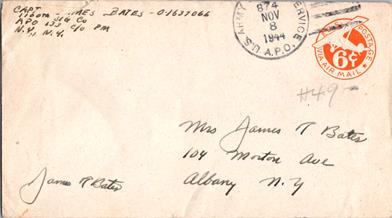 CAPT. JAMES BATES - O-1637066
Sig Co
APO 133 c/o PM
N.Y., N.Y.
U.S. ARMY SERVICE
874
NOV
8
1944
A.P.O.
POSTAGE
6¢
VIA AIR MAIL
#49-
Mrs James T Bates
104 Morton Ave
Albany N.Y
James T Bates